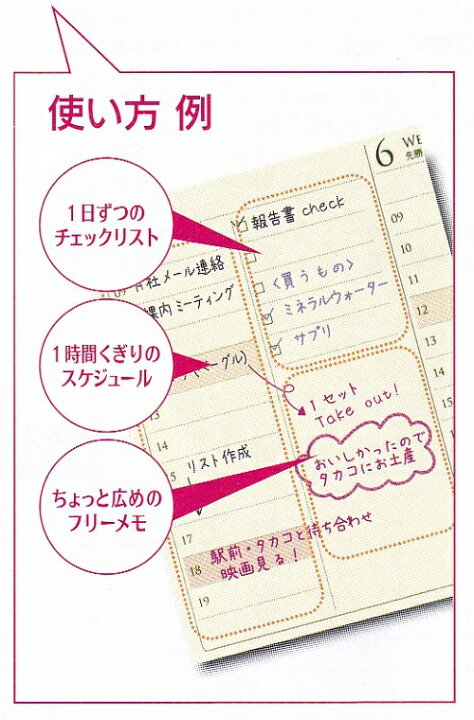 使い方 例
1日ずつの
チェックリスト
1時間くぎりの
スケジュール
ちょっと広めの
フリーメモ
社メール連絡
課内ミーティング
ーグル)
13
14
15 リスト作成
17
18 駅前・タカコと待ち合わせ
映画見る!
19
報告書 check
〈買うもの〉
ミネラルウォーター
サプリ
1セット
Take out!
おいしかったので
タカコにお土産
6 WE
先勝
09
10
11
12
13
14